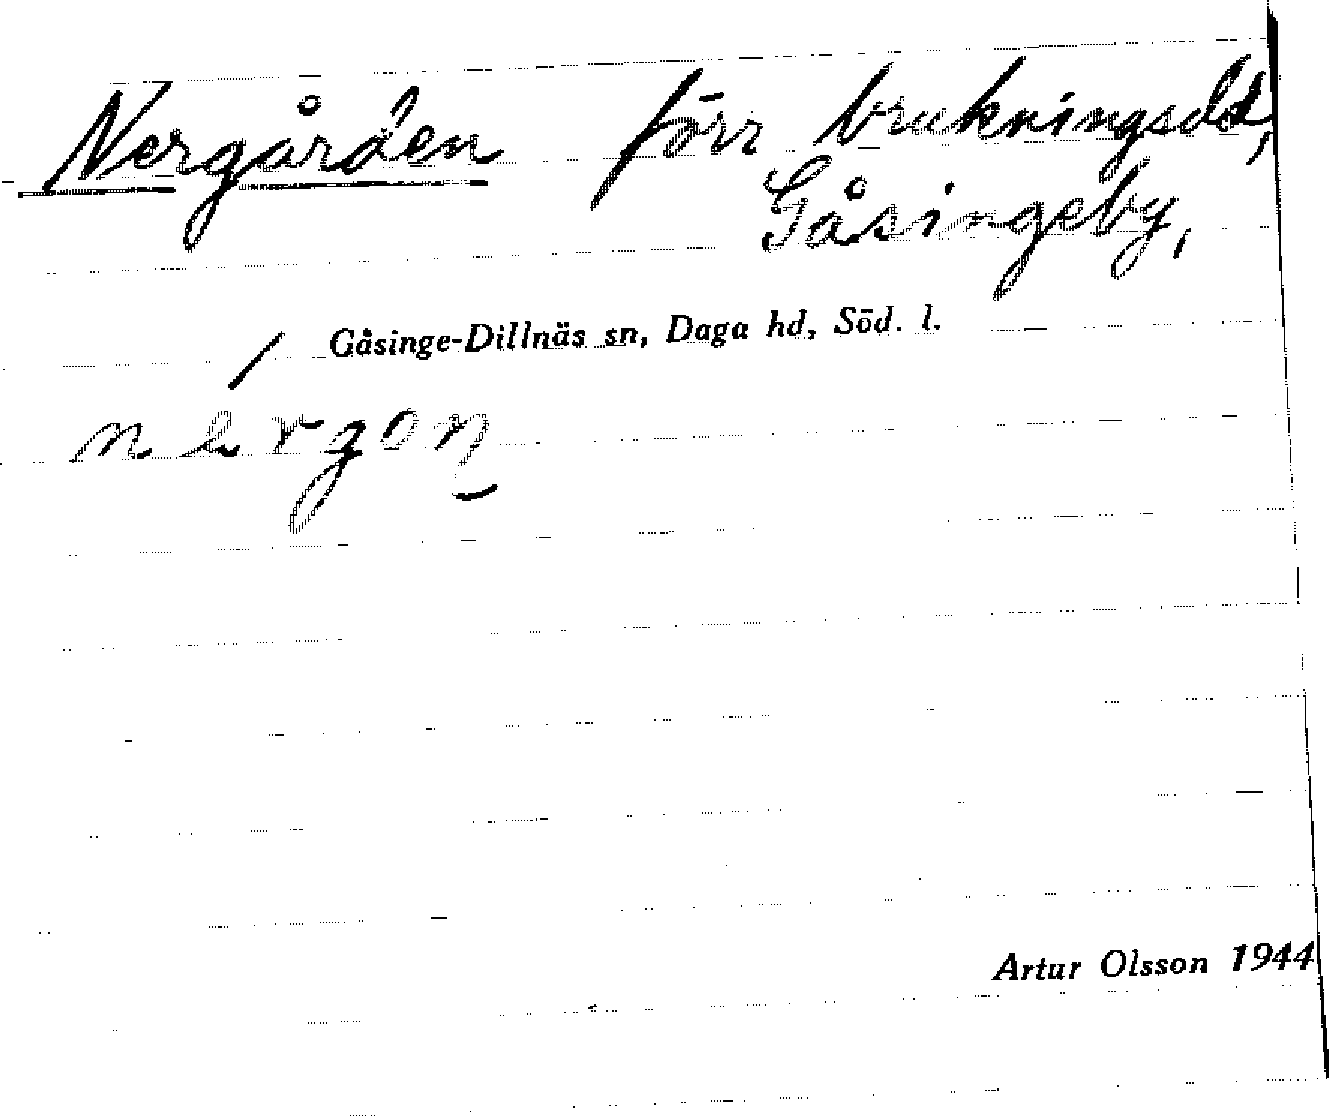 Nergården förr brukningsdel,
Gåsingeby,
Gåsinge-Dillnäs sn, Daga hd, Söd. l.
Artur Olsson 1944